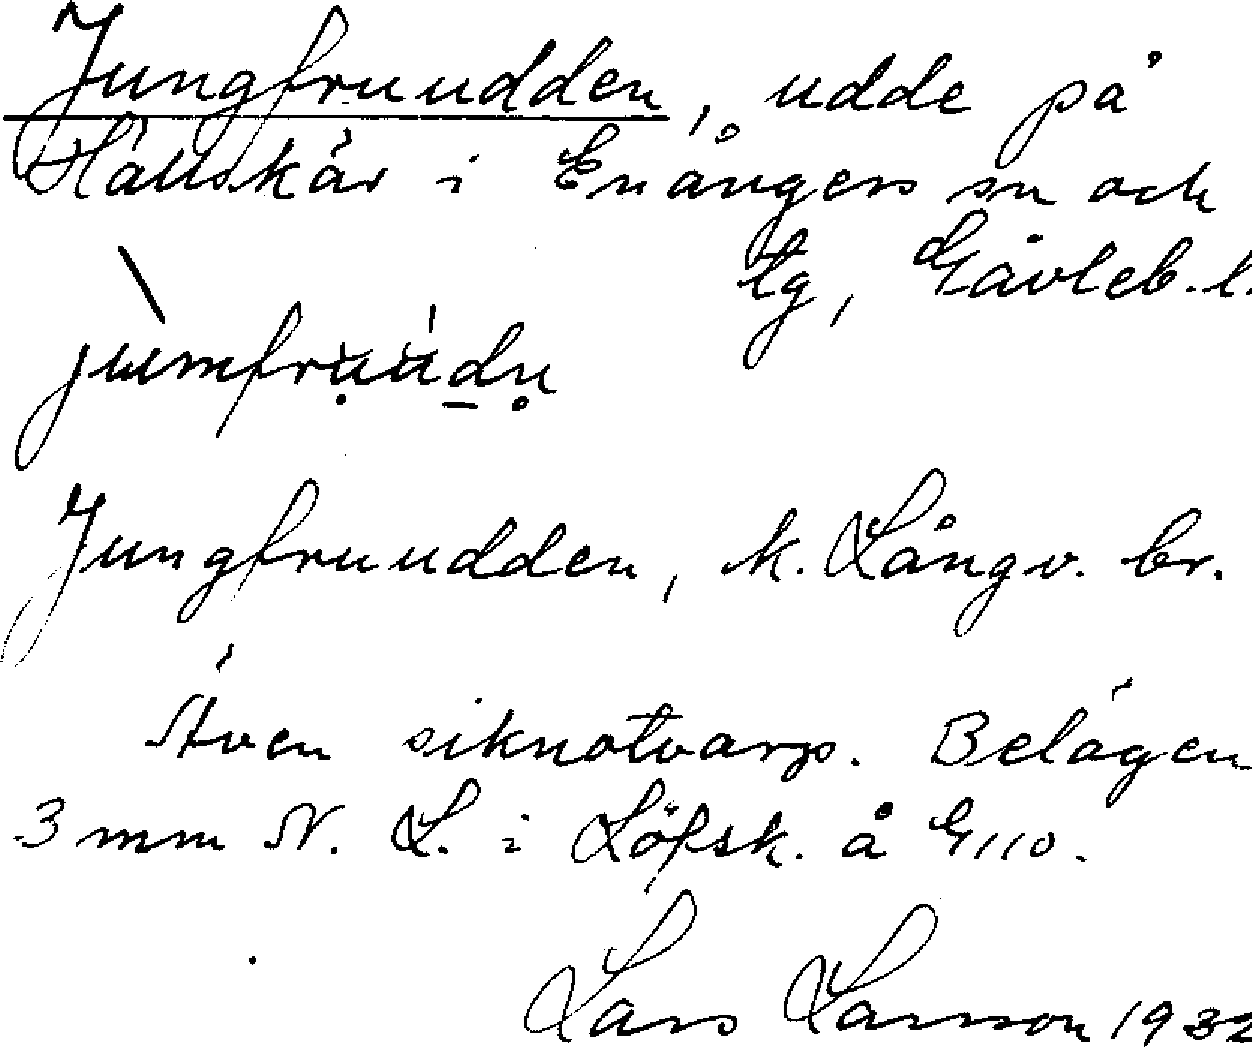 Jungfruudden, udde på
Hällskär i Enångers sn och
tg, Gävleb. l.
jumfruudn
Jungfruudden, k. Långv. br.
Även siknotvarp. Belägen
3 mm N. L. i Löfsk. å G110.
Lars Larsson 1932